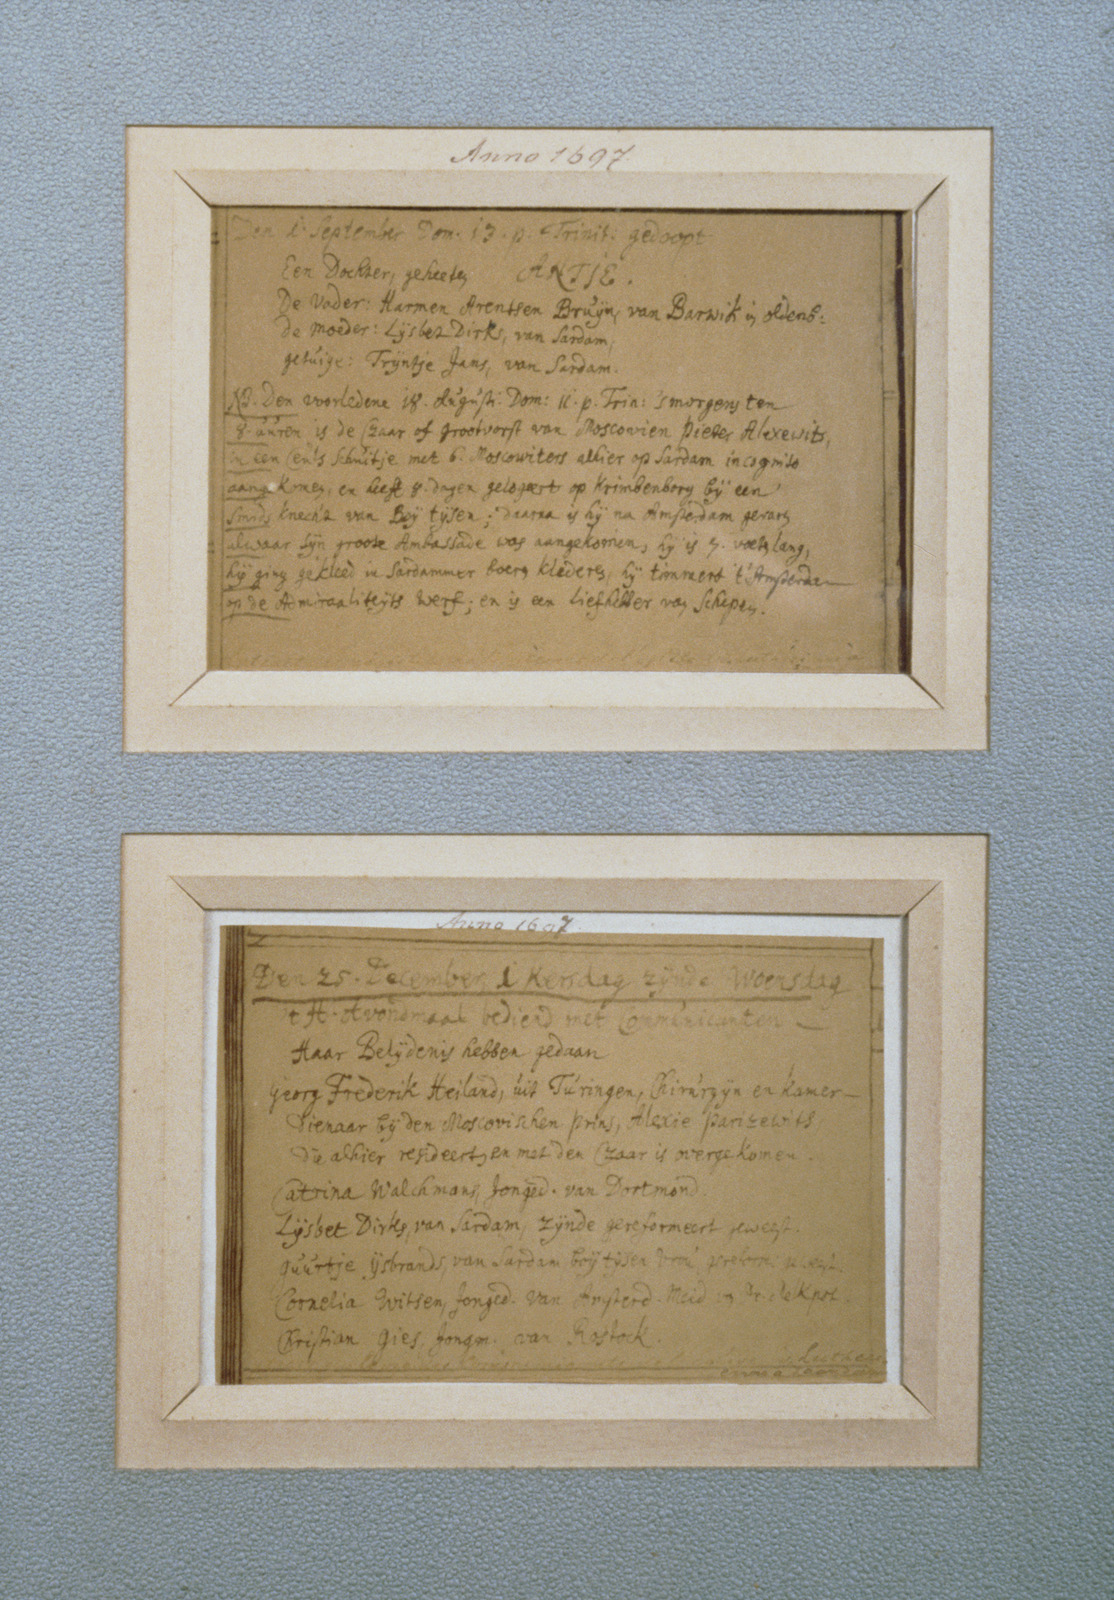 Anno 1697
Den 1. September Dom. 13. p. Trinit. gedoopt
Een Dochter, geheeten ANTJE.
De Vader: Harmen Arentsen Bruijn, van Barwik in oldenb:
de moeder: Lijsbet Dirks, van Sardam,
getuige: Trijntje Jans, van Sardam.
NB. Den voorledene 18. Augusti. Dom: 11. p. Trin: 's morgens ten
8. uuren is de Czaar of grootvorst van Moscovien Pieter Alexewits,
in een schuitje met 6. Moscowiters alhier op Sardam incognito
aangekomen, en heeft 8. dagen gelogeert op Krimbenborg bij een
Smids knecht van Boij tijsen; daarna is hij na Amsterdam gevaren
alwaar sijn groote Ambassade was aangekomen, hij is 7. voeten lang,
hij ging gekleed in Sardammer boeren klederen, hij timmert 't Amsterdam
op de Admiraliteijts werf; en is een liefhebber van Schepen.
Anno 1697
Den 25. December, 1 Kersdag zijnde Woensdag
't H. Avondmaal bediend met Communicanten
Haar Belijdenis hebben gedaan
Georg Frederik Heiland, uit Turingen, Chirurgijn en Kamer-
dienaar bij den Moscovischen prins, Alexie Parizewits,
die alhier resideert, en met den Czaar is overgekomen.
Catrina Walchmans, Jonged. van Dortmond.
Lijsbet Dirks, van Sardam, zijnde gereformeert geweest.
guurtje ijsbrands, van Sardam boij tijsen vrou
Cornelia Witsen, Jonged. van Amsterd. Meid
Christian Gies, Jongm. van Rostock.